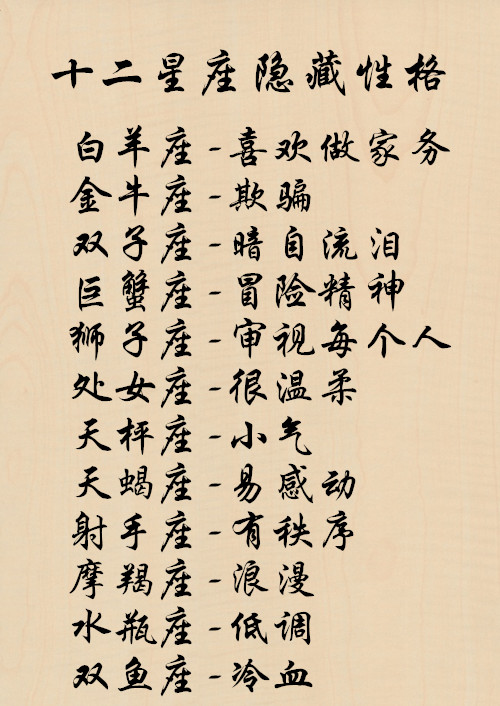 十二星座隐藏性格
白羊座-喜欢做家务
金牛座-欺骗
双子座-暗自流泪
巨蟹座-冒险精神
狮子座-审视每个人
处女座-很温柔
天枰座-小气
天蝎座-易感动
射手座-有秩序
摩羯座-浪漫
水瓶座-低调
双鱼座-冷血